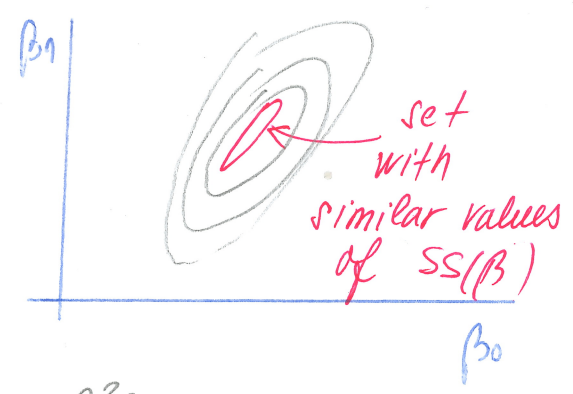 β1
set
with
similar values
of SS(β)
β0